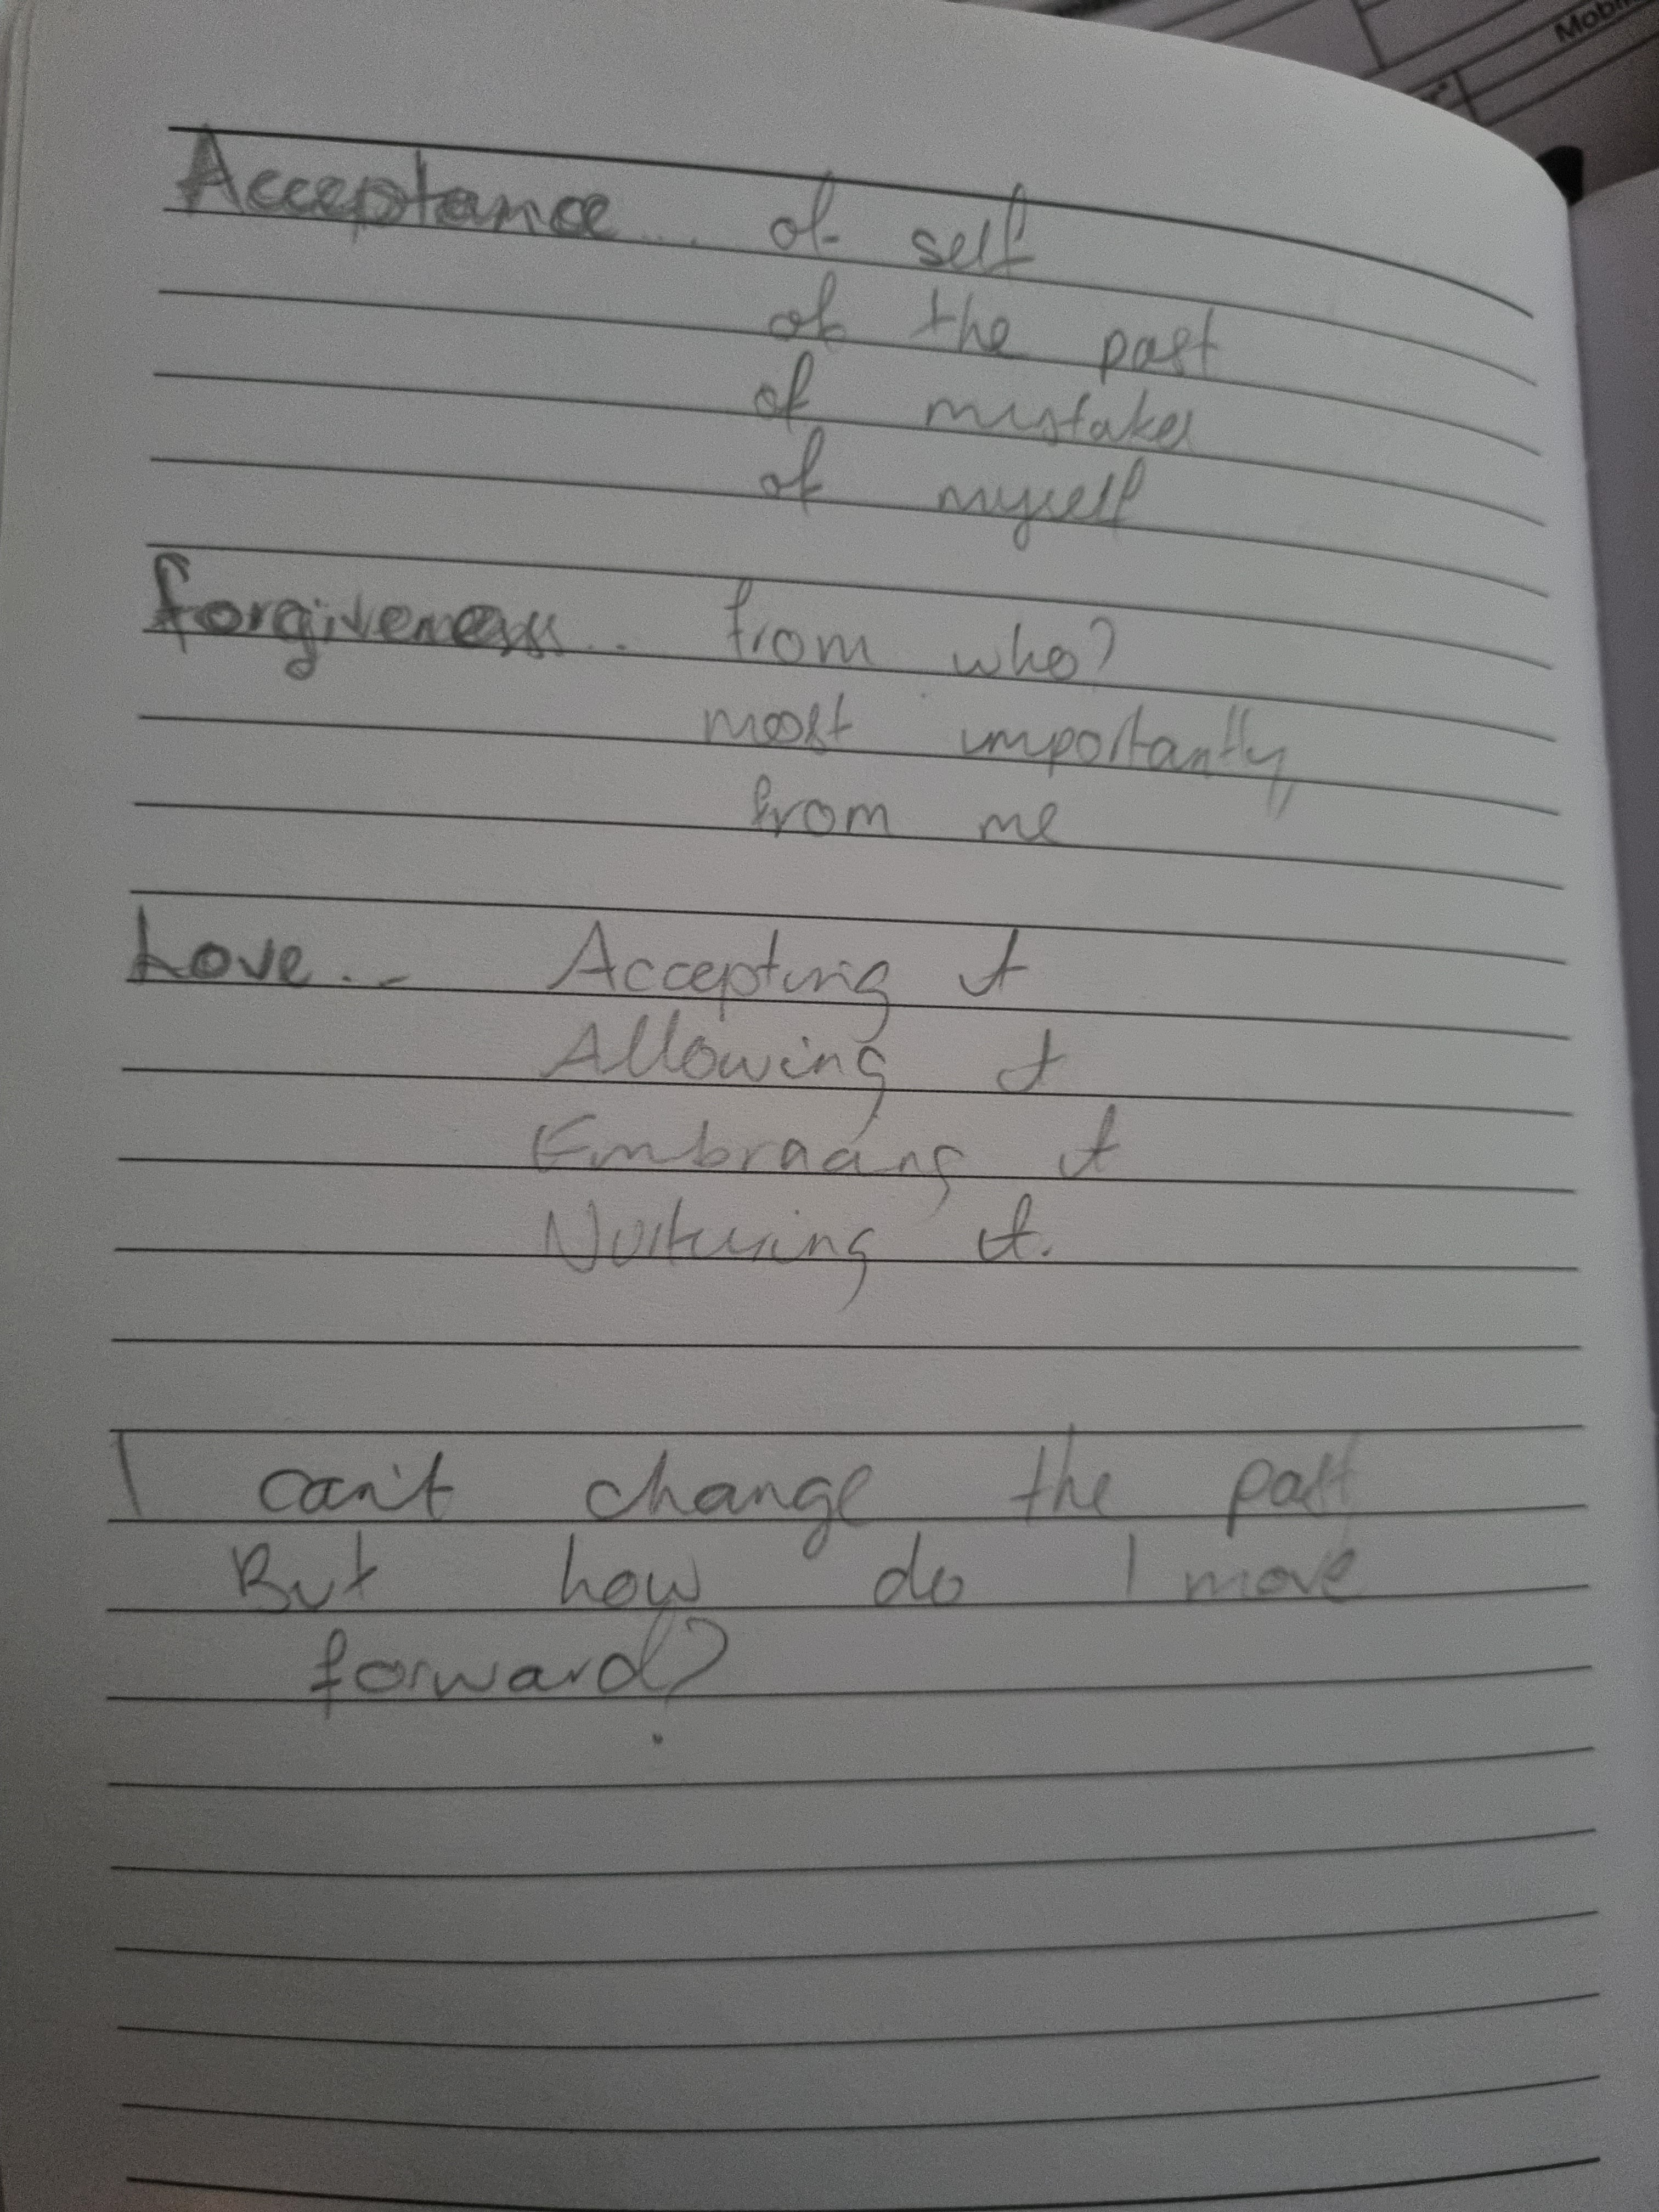 Acceptance... of self
of the past
of mistakes
of myself
forgiveness... from who?
most importantly,
from me
Love... Accepting it
Allowing it
Embracing it
Nurturing it.
I can't change the past
But how do I move
forward?